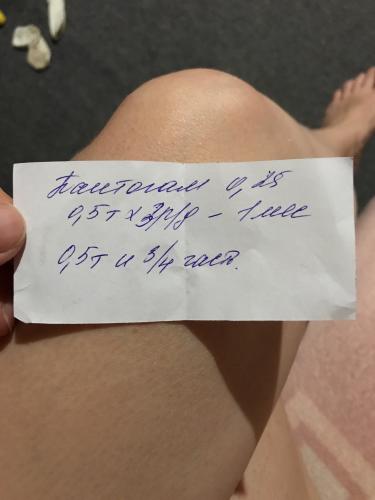 Пантогам 0,25
0,5т х 3 р/д – 1 мес
0,5т и 3/4 част.